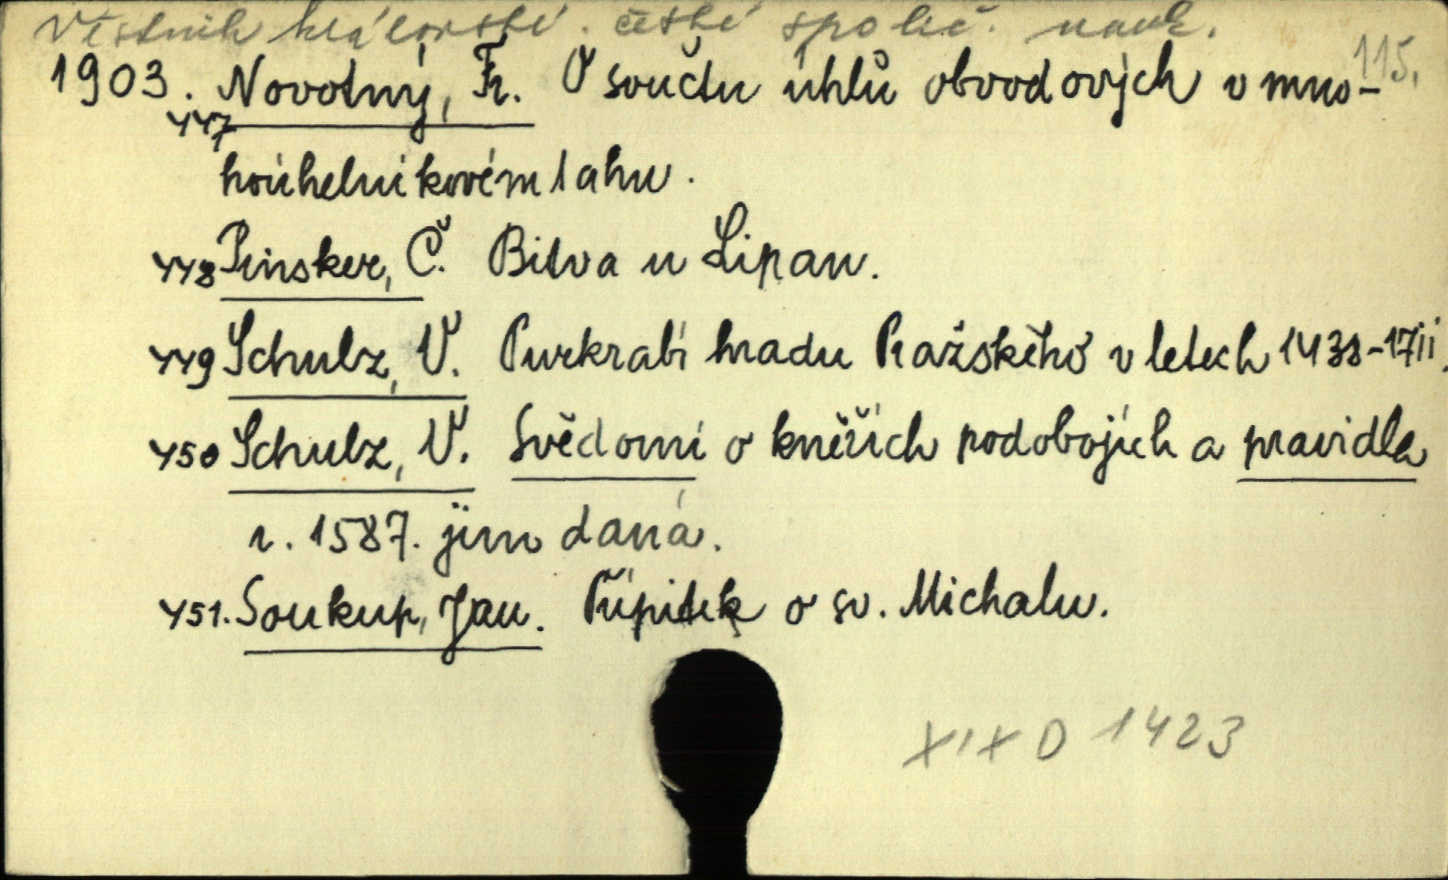 Věstník královské. české společ. nauk.
115.
1903. Novotný, Fr. O součtu úhlů obvodových v mno-
447
hoúhelníkovém tahu.
448 Pinsker, Č. Bitva u Lipan.
449 Schulz, V. Purkrabí hradu Pražského v letech 1438-1711.
450 Schulz, V. Svědomí o kněžích podobojích a pravidla
r. 1587. jim daná.
451. Soukup, Jan. Půpitek o sv. Michalu.
XIX D 1423